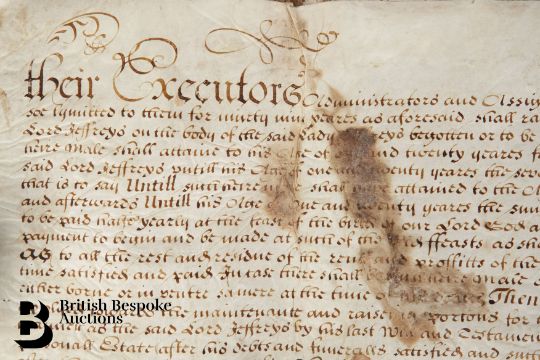 their Executors Administrators and Assig
soe lymitted to them for ninty nine yeares as aforesaid shall ra
Lord Jeffreys on the body of the said Lady reys begotten or to be
heire male shall attaine to his Age of and twenty yeares
said Lord Jeffreys untill his Age one and twenty yeares the
that is to say Untill such heire shall have attained to the
and afterwards Untill his Age one and twenty yeares the sum
to be paid halfe yearly at the feast of the birth of our Lord God a
payment to begin and be made at such of the said ffeasts as sh
as to all the rest and residue of the rents and proffitts of the
time satisfied and paid In case there shall be heire male
either borne or in ventre samere at the time of Then
the maintenance and raise portons for
as the said Lord Jeffreys by his last Will and Testamen
sonall Estate after his debts and funeralls satisfied and
British Bespoke
Auctions